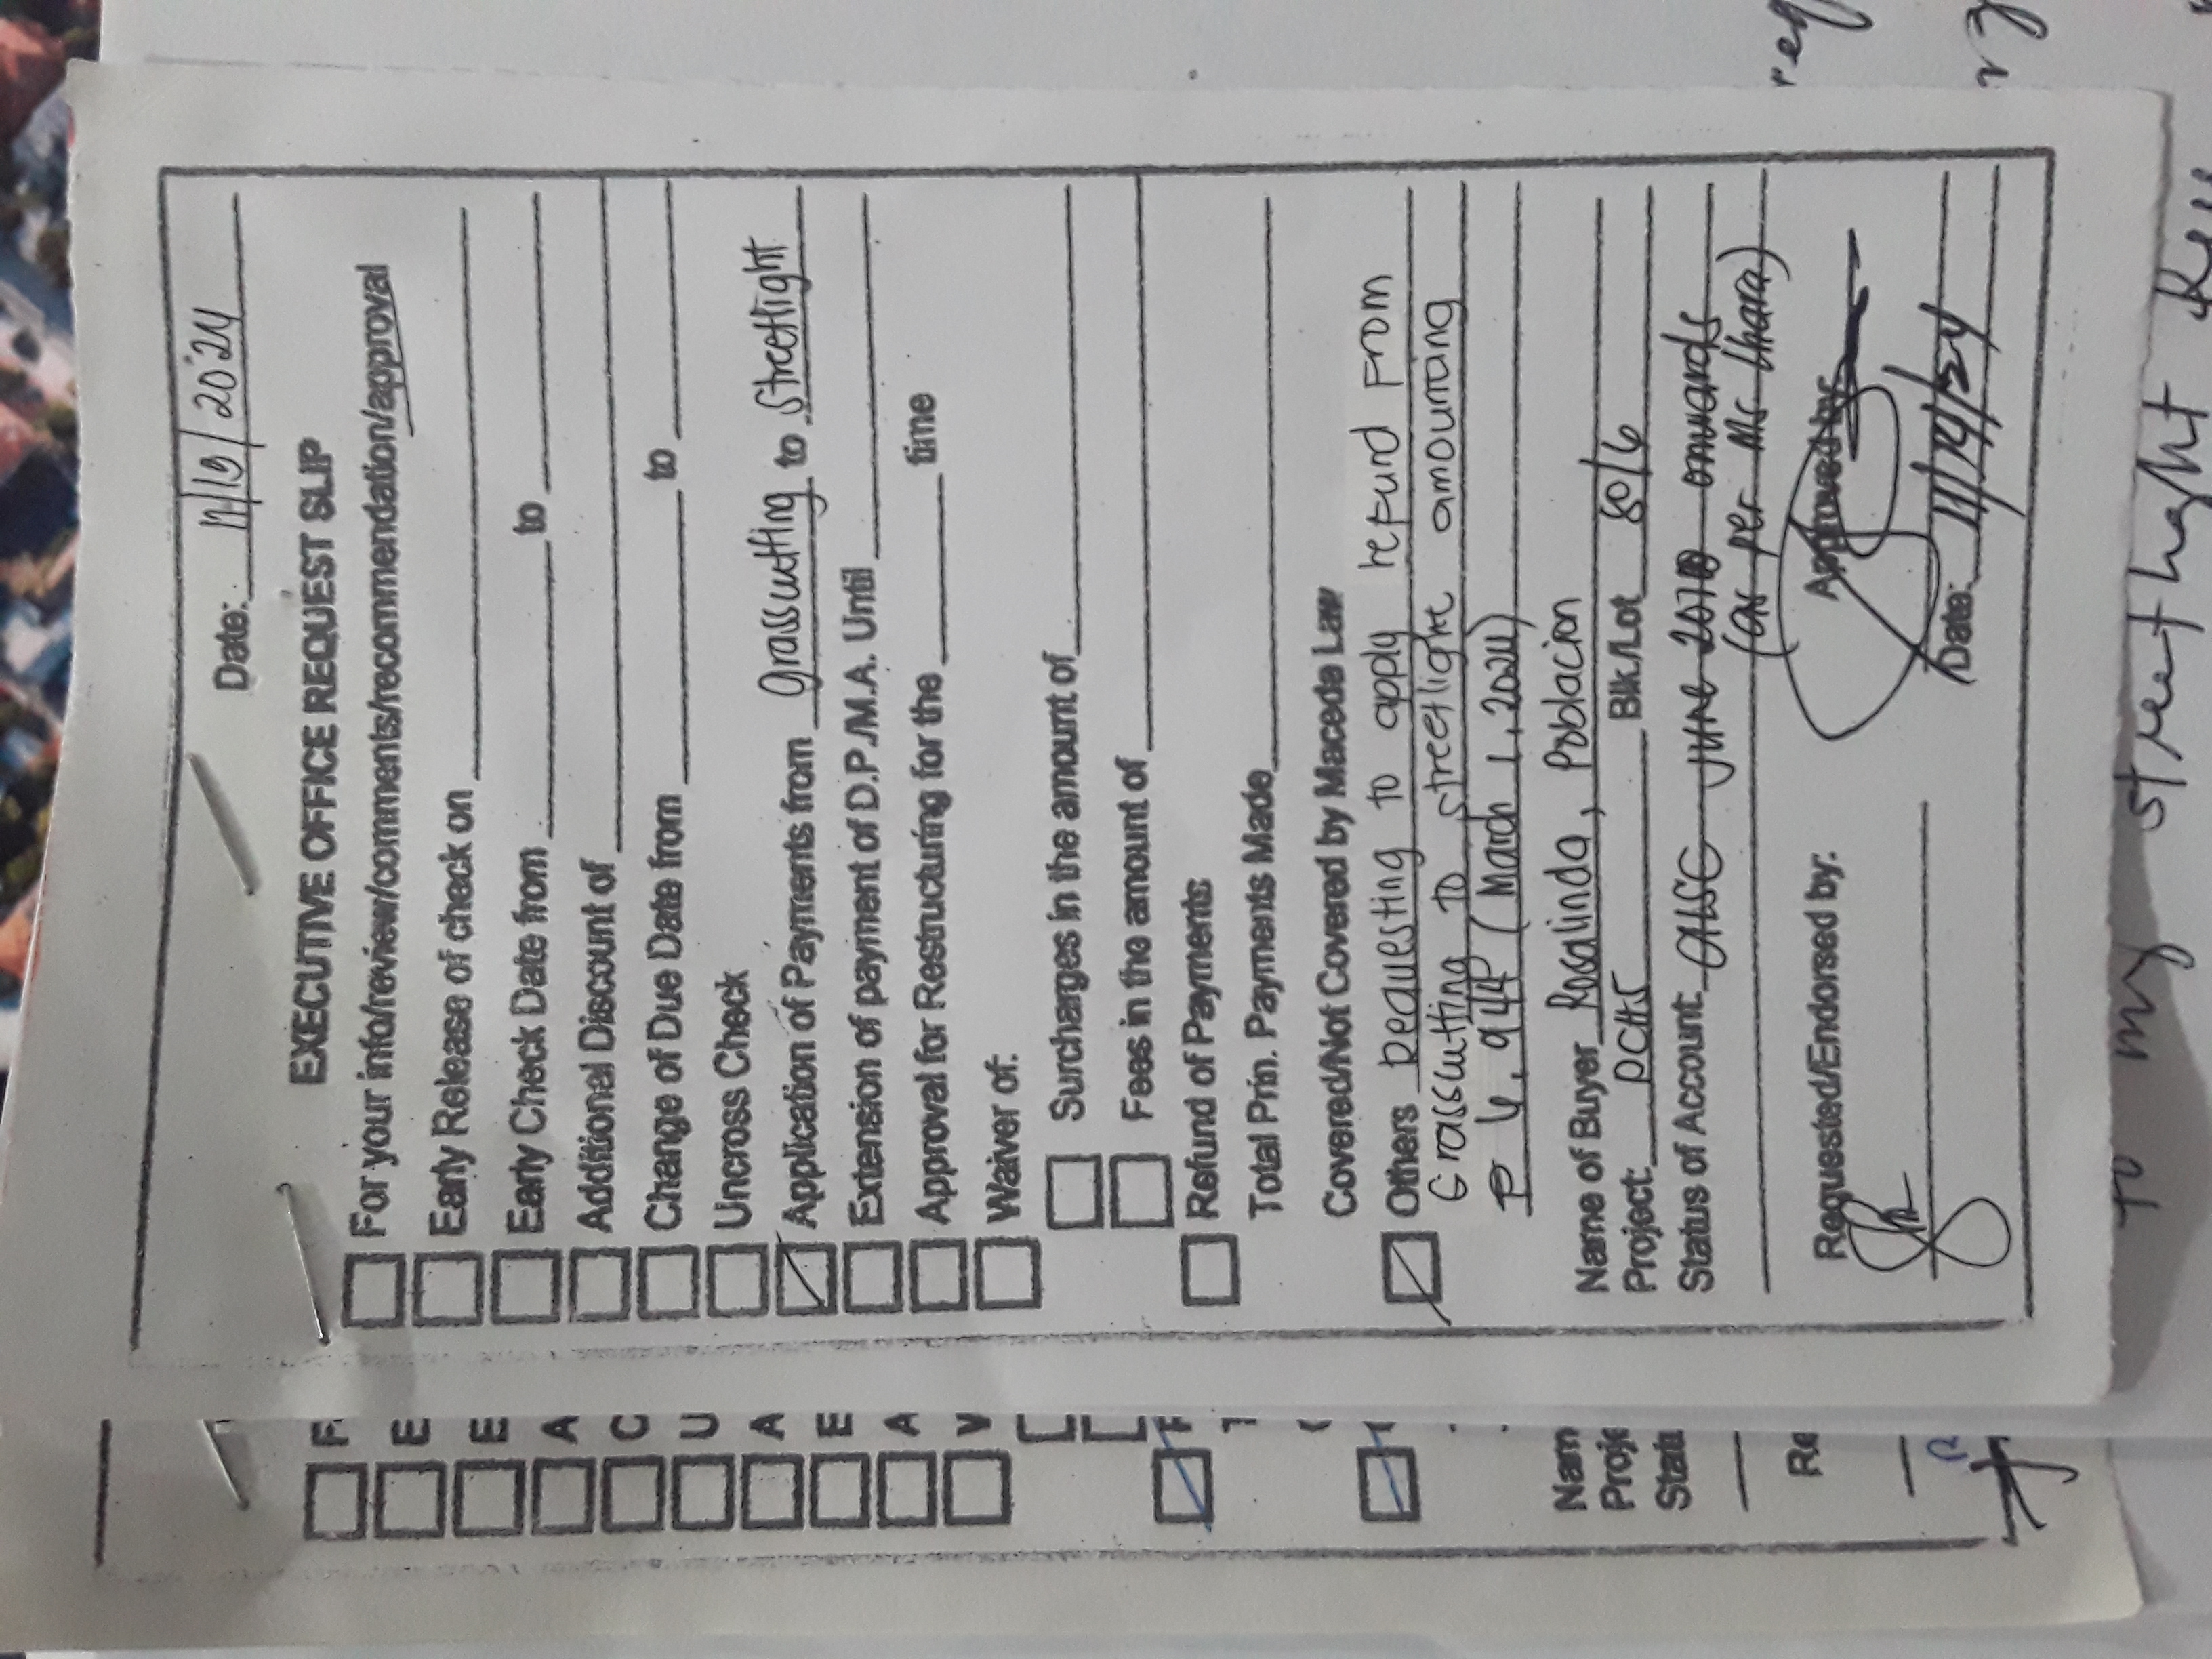 Date: 11/13/2024
EXECUTIVE OFFICE REQUEST SLIP
For your info/review/comments/recommendation/approval
Early Release of check on
Early Check Date from to
Additional Discount of
Change of Due Date from to
Uncross Check
Application of Payments from Grasscutting to Streetlight
Extension of payment of D.P./M.A. Until
Approval for Restructuring for the time
Waiver of:
Surcharges in the amount of
Fees in the amount of
Refund of Payments
Total Prin. Payments Made
Covered/Not Covered by Maceda Law
Others Requesting to apply refund From
Grasscutting to streetlight amounting
₱ 6,944 (March 1, 2024)
Name of Buyer Rosalinda, Poblacion
Project: PCH5 Blk./Lot 80/6
Status of Account: June onwards
(as per Ms. Lhara)
Requested/Endorsed by: Approved by:
Date: 11/14/24
F
E
E
A
C
U
A
E
A
W
Nam
Proje
Statu
Re
req
to my streetlight